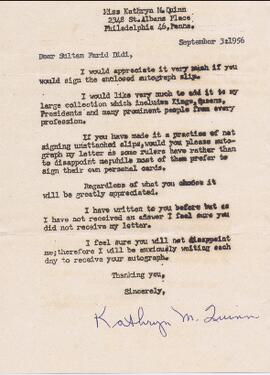 Miss Kathryn M. Quinn
2348 St. Albans Place
Philadelphia 46, Penna.
September 3:1956
Dear Sultan Farid Didi,
I would appreciate it very much if you
would sign the enclosed autograph slip.
I would like very much to add it to my
large collection which includes Kings, Queens,
Presidents and many prominent people from every
profession.
If you have made it a practice of not
signing unattached slips, would you please auto-
graph my letter as some rulers have rather than
to disappoint me, while most of them prefer to
sign their own personal cards.
Regardless of what you choose it
will be greatly appreciated.
I have written to you before but as
I have not received an answer I feel sure you
did not receive my letter.
I feel sure you will not disappoint
me; therefore I will be anxiously waiting each
day to receive your autograph.
Thanking you,
Sincerely,
Kathryn M. Quinn